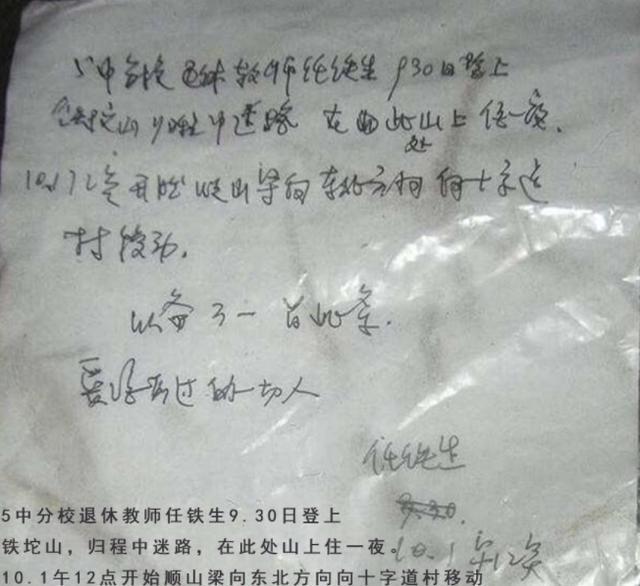 5中分校退休教师任铁生9.30日登上
铁坨山归程中迷路 在此山上住一夜.
处
10.1 12点开始顺山梁向东北方向向十字道
村移动.
以备万一 留此条.
爱好
过的一切人
任铁生
9.30.
10.1 午12点
5中分校退休教师任铁生9.30日登上
铁坨山，归程中迷路，在此处山上住一夜。
10.1午12点开始顺山梁向东北方向向十字道村移动